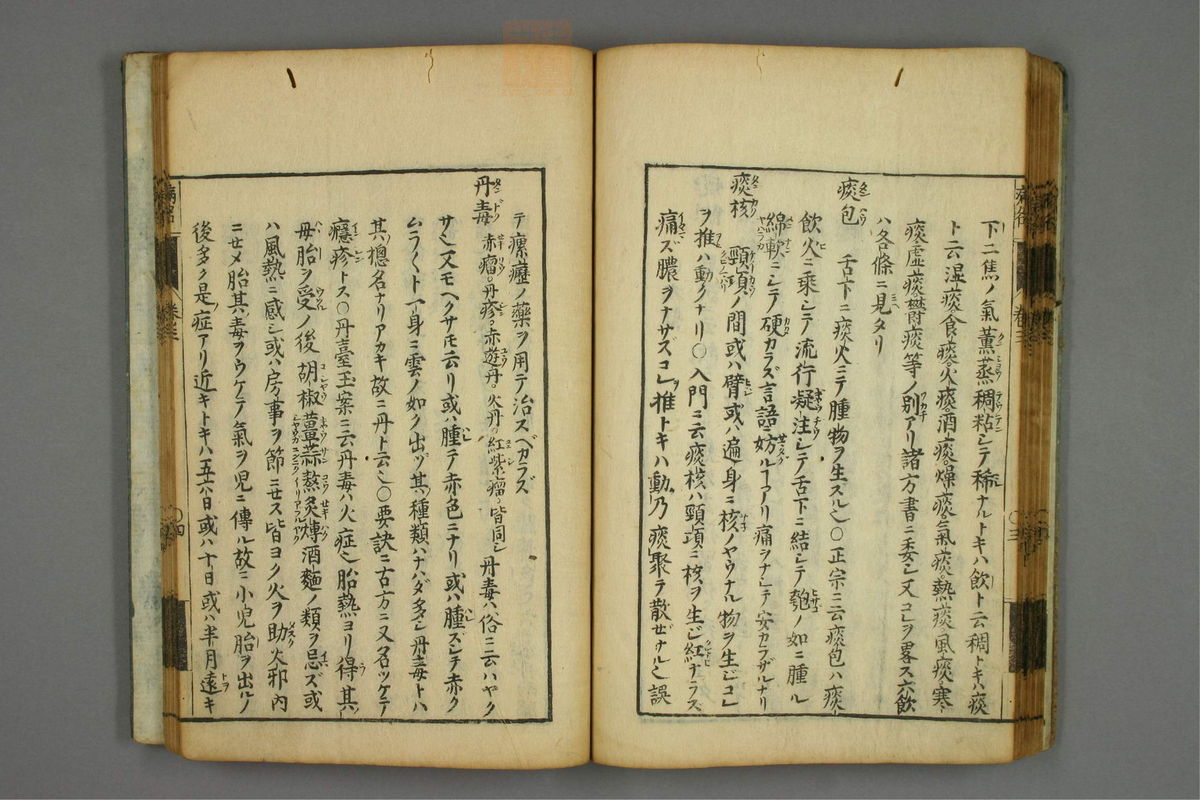 下二焦ノ氣薫蒸稠粘シテ稀ナルトキハ飲ト云稠トキハ痰
ト云湿痰食痰火痰酒痰燥痰氣痰熱痰風痰寒
痰虚痰欝痰等ノ別アリ諸方書ニ委シ又コレヲ畧ス六飲
ハ各條ニ見タリ
痰包 舌下ニ痰火ニテ腫物ヲ生スル也○正宗ニ云痰包ハ痰
飲火ニ乗シテ流行凝注シテ舌下ニ結シテ匏ノ如ニ腫ル
綿軟ニシテ硬カラズ言語ニ妨ルヿアリ痛ヲナシテ安カラザルナリ
痰核 頸項ノ間或ハ臂或ハ遍身ニ核ノヤウナル物ヲ生ジコレ
ヲ推ハ動クナリ○入門ニ云痰核ハ頸項ニ核ヲ生ジ紅ナラズ
痛ズ膿ヲナサズコレヲ推トキハ動乃痰聚テ散ゼザル也誤
テ瘰癧ノ藥ヲ用テ治スベカラズ
丹毒 赤瘤丹疹赤遊丹火丹紅紫瘤皆同シ 丹毒ハ俗ニ云ハヤク
サ也又モヘクサトモ云リ或ハ腫テ赤色ニナリ或ハ腫ズシテ赤ク
ムラ〱ト一身ニ雲ノ如ク出ヅ其種類ハナハダ多シ丹毒トハ
其揔名ナリアカキ故ニ丹ト云也○要訣ニ古方ニ又名ツケテ
癮疹トス○丹臺玉案ニ云丹毒ハ火症也胎熱ヨリ得其
母胎ヲ受ノ後胡椒薑蒜熬炙煿酒麵ノ類ヲ忌ズ或
ハ風熱ニ感シ或ハ房事ヲ節ニセス皆ヨク火ヲ助火邪内
ニセメ胎其毒ヲウケテ氣ヲ児ニ傳ル故ニ小児胎ヲ出ルノ
後多ク是症アリ近キトキハ五六日或ハ十日或ハ半月遠キ